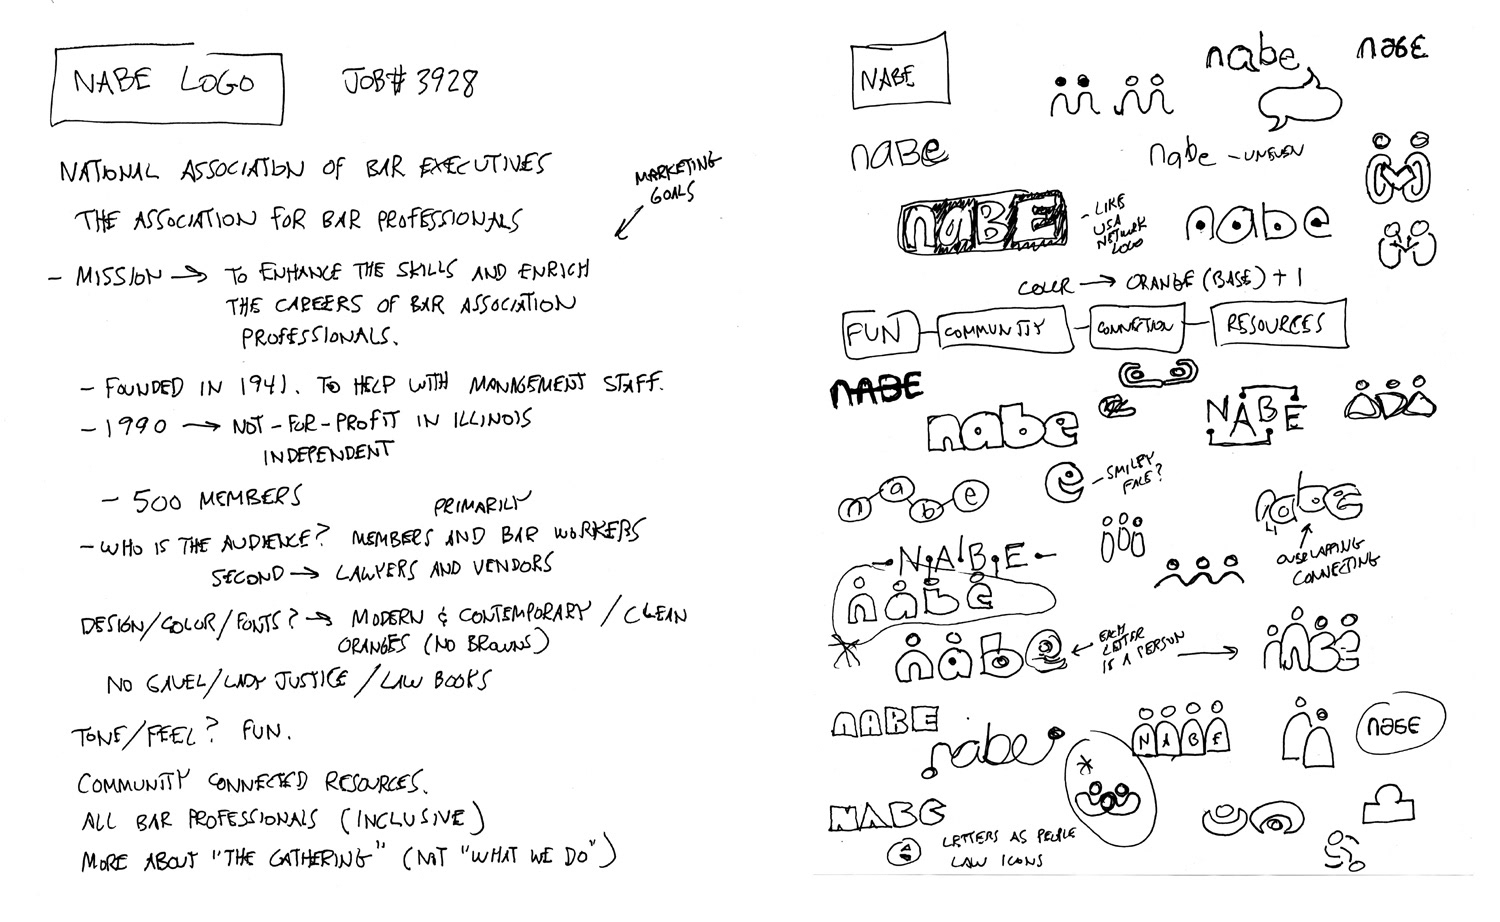 NABE LOGO
JOB# 3928
NATIONAL ASSOCIATION OF BAR EXECUTIVES
THE ASSOCIATION FOR BAR PROFESSIONALS
MARKETING
GOALS
- MISSION → TO ENHANCE THE SKILLS AND ENRICH
THE CAREERS OF BAR ASSOCIATION
PROFESSIONALS.
- FOUNDED IN 1941. TO HELP WITH MANAGEMENT STAFF.
- 1990 → NOT-FOR-PROFIT IN ILLINOIS
INDEPENDENT
- 500 MEMBERS
PRIMARILY
- WHO IS THE AUDIENCE? MEMBERS AND BAR WORKERS
SECOND → LAWYERS AND VENDORS
DESIGN/COLOR/FONTS? → MODERN & CONTEMPORARY / CLEAN
ORANGES (NO BROWNS)
NO GAVEL/LADY JUSTICE / LAW BOOKS
TONE/FEEL? FUN.
COMMUNITY CONNECTED RESOURCES.
ALL BAR PROFESSIONALS (INCLUSIVE)
MORE ABOUT "THE GATHERING" (NOT "WHAT WE DO")
NABE
nabe
naBE
naBe
nabe - UNEVEN
naBE
- LIKE
USA
NETWORK
LOGO
nabe
COLOR → ORANGE (BASE) + 1
FUN - COMMUNITY - CONNECTION - RESOURCES
NABE
nabe
NABE
nabe
e - SMILEY
FACE?
nabe
OVERLAPPING
CONNECTING
N.A.B.E
nabe
nabe
EACH
LETTER
IS A PERSON
NABE
NABE
nabe
NABE
naBE
NABE
e
LETTERS AS PEOPLE
LAW ICONS